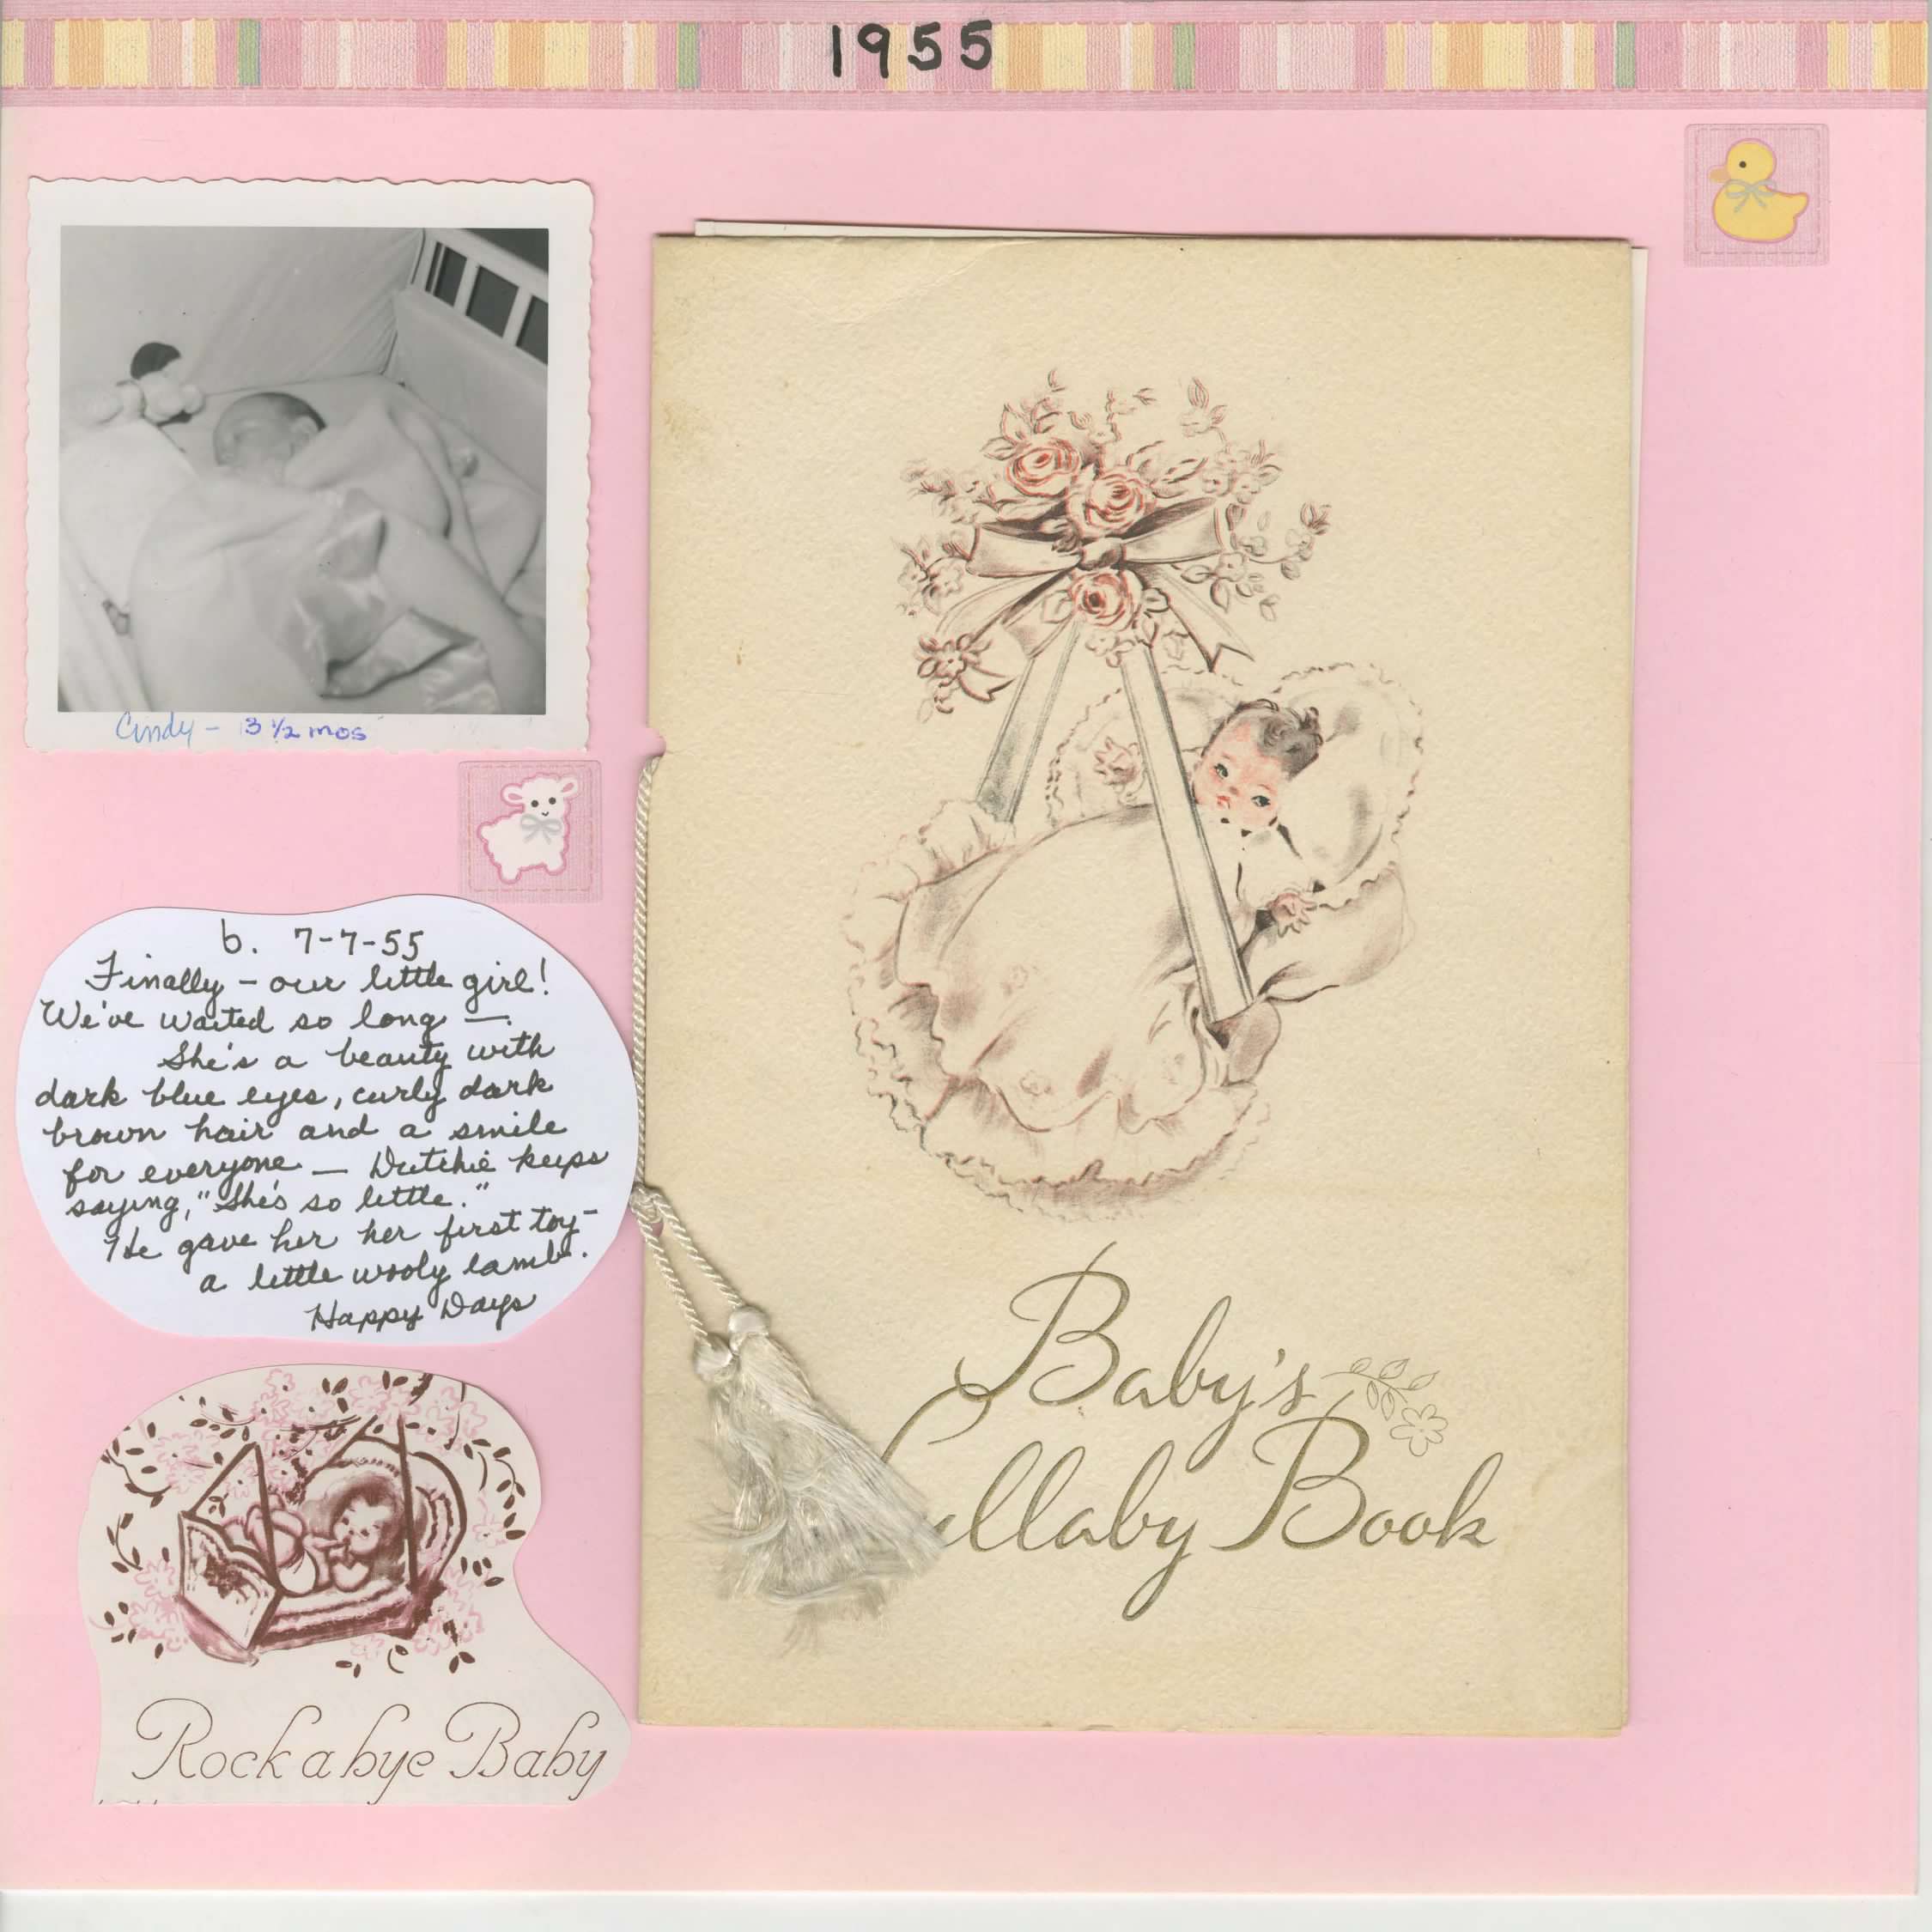 1955
Cindy - 3 1/2 mos
b. 7-7-55
Finally - our little girl!
We've waited so long —.
She's a beauty with
dark blue eyes, curly dark
brown hair and a smile
for everyone — Dutchie keeps
saying, "She's so little."
He gave her her first toy-
a little wooly lamb.
Happy Days
Rock a bye Baby
Baby's
Lullaby Book